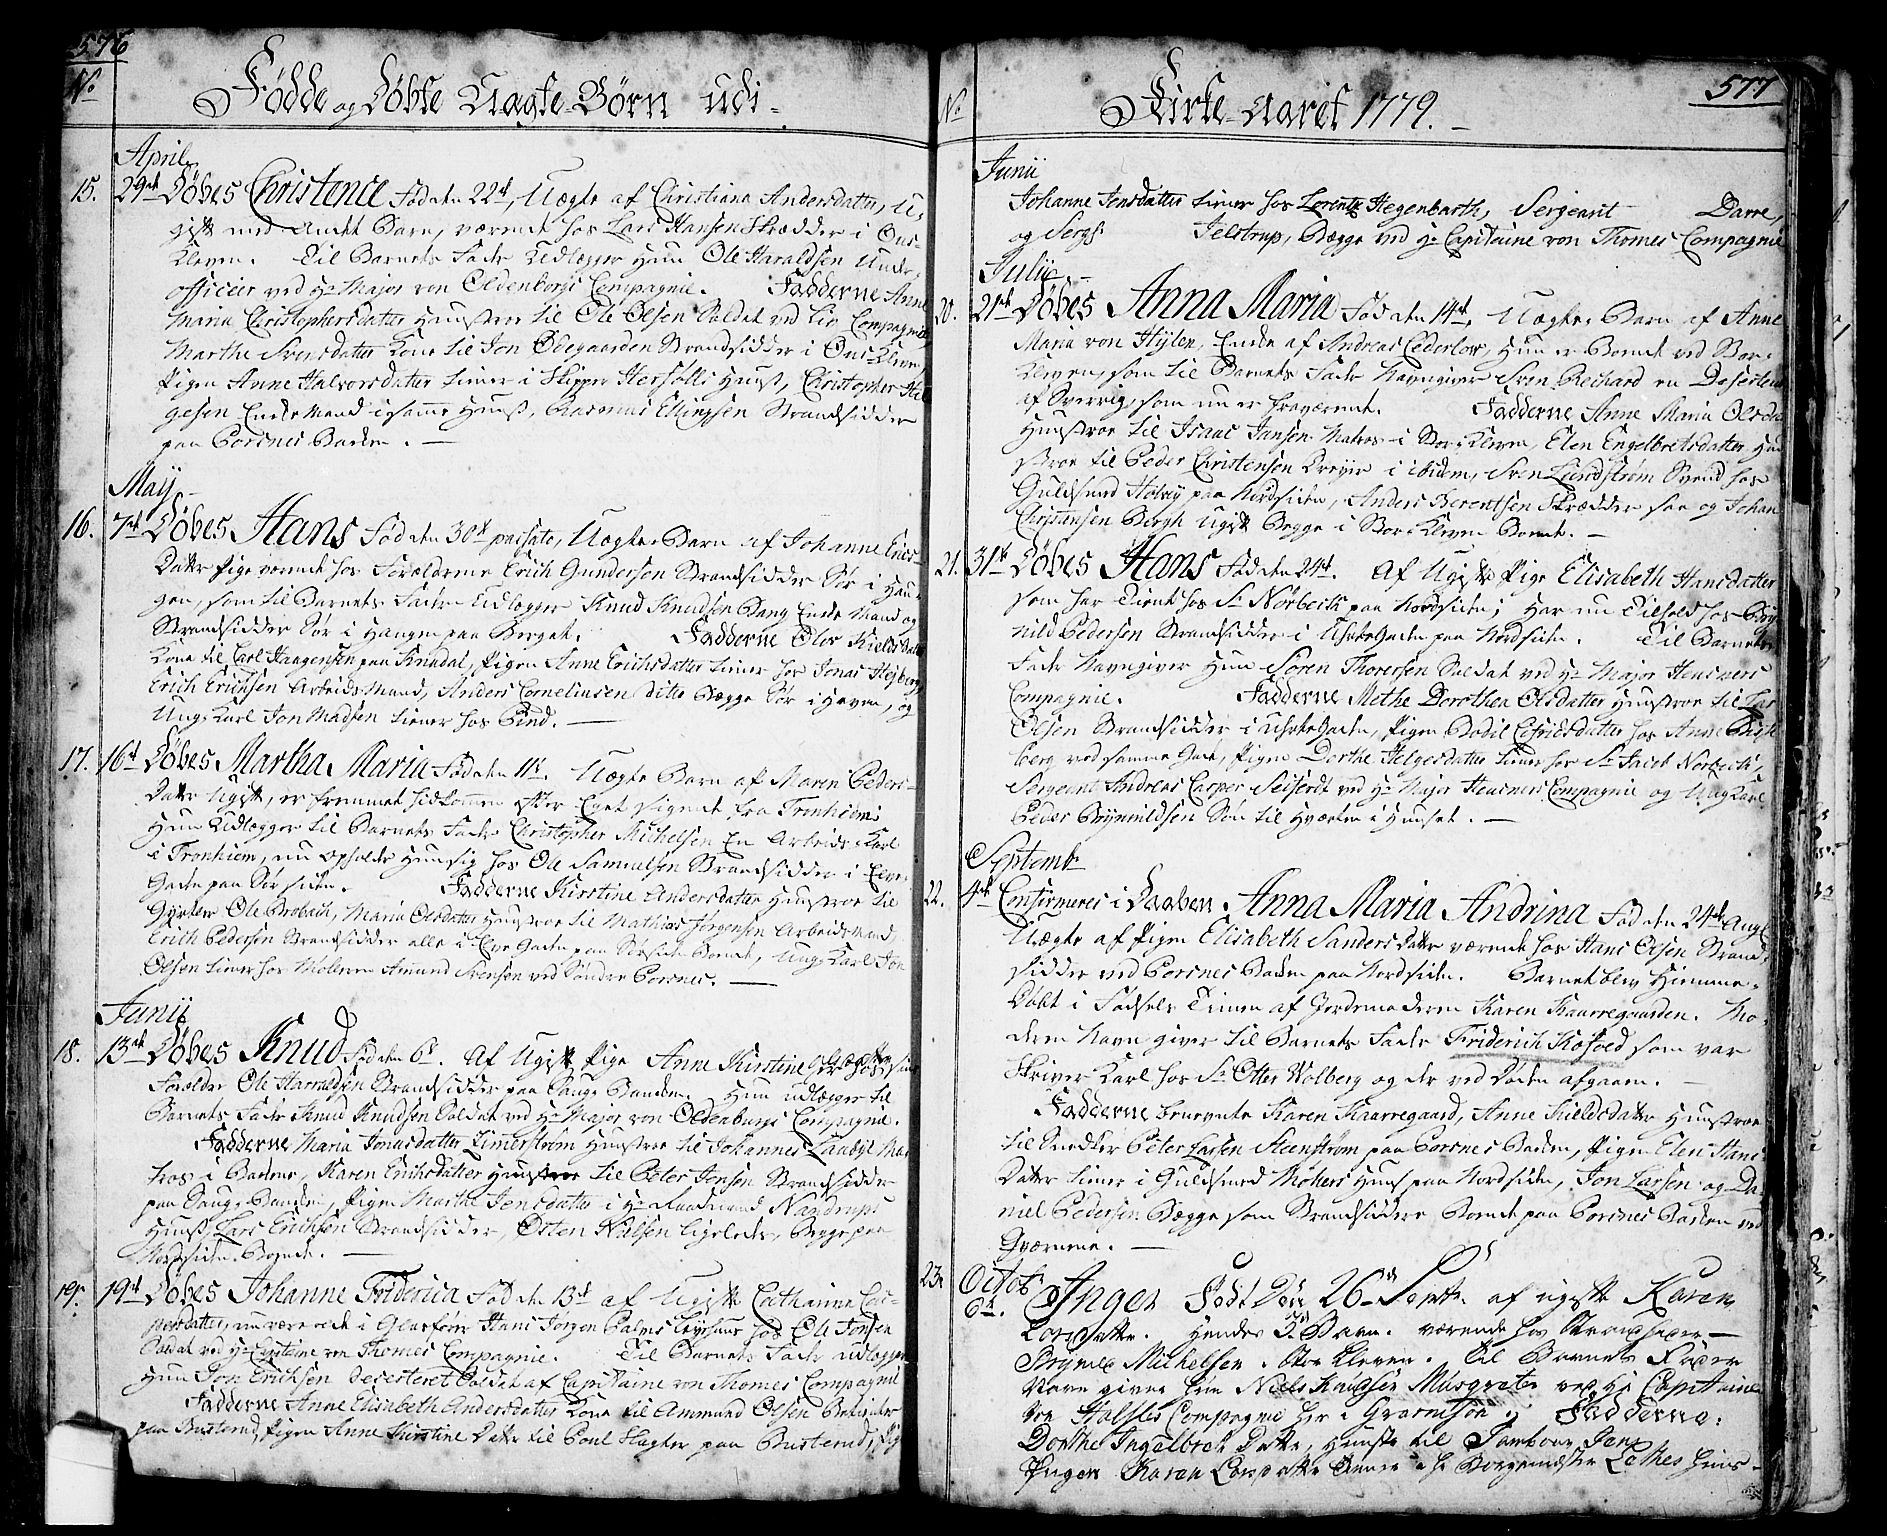 576
No
Fødde og Døbte Uægte-Børn udi-
April
15. 29de Døbes Christence Fød den 22de, Uægte af Christiana Andersdatter, U-
gift med Andet Barn, værende hos Lars Hansen Skrædder i Ons-
Kleven. Til Barnets Fader Udlægger Hun Ole Haraldsen Under-
officeer ved Hr Major von Oldenborgs Compagnie. Fadderne Anne
Maria Christophersdatter Hustroe til Ole Olsen Soldat ved Liv Compagniet,
Marthe Svensdatter Kone til Jon Ødegaarden Strandsidder i Ons-Kleven,
Pigen Anne Halvorsdatter tiener i Skipper Hersolls Huus, Christopher Hel-
gesen Enke Mand i samme Huus, Rasmus Ellingsen Strandsidder
paa Porsnes Backen. —
May
16. 7de Døbes Hans Fød den 30te passato, Uægte-Barn af Johanne Erics-
Datter Pige værende hos Forældrene Erich Gundersen Strandsidder Sør i Hau-
gen, som til Barnets Fader Udlægger Knud Knudsen Bang Enke Mand og
Strandsidder Sør i Haugen paa Berget. Fadderne Olea Kieldsdatter
Kone til Carl Haagensen paa Knudal, Pigen Anne Erichsdatter tiener hos Jonas Hejberg,
Erich Erichsen Arbeids Mand, Anders Corneliusen ditto Begge Sør i Haven, og
Ung-Karl Jon Madsen tiener hos Bind. —
17. 16de Døbes Martha Maria Fød den 11te. Uægte Barn af Maren Peders-
Datter Ugift, er fremmet hidkommen efter Eget sigende fra Tronhiem.
Hun Udlægger til Barnets Fader Christopher Michelsen En Arbeids-Karl
i Tronhiem, nu opholder Hun sig hos Ole Samuelsen Strandsidder i Eive-
Gaden paa Sør siden. Fadderne Kirstine Andersdatter Hustroe til
Gjørtler Ole Brobach, Maria Olsdatter Hustroe til Mathias Jørgensen Arbeidsmand
Erich Pedersen Strandsidder alle i Eve Gaden paa Sørsiden Boende, Ung Karl Jon
Olsen tiener hos Møleren Amund Svensen ved Søndre Porsnes. —
Junii
18. 13de Døbes Knud Fød den 6te. Af Ugift Pige Anne Kirstine hos sine
Forælder Ole Haraldsen Strandsidder paa Sauge Banden. Hun udlægger til
Barnets Fader Knud Knudsen Soldat ved Hr Major von Oldenburgs Compagnie.
Fadderne Maria Jonasdatter Zimerstrøm Hustroe til Johannes Laubye Ma-
tros i Badene, Karen Erichsdatter Hustroe til Peter Jensen Strandsidder
paa Sauge Banden, Pigen Marthe Jensdatter i Hr Raadmand Nandrups
Huus, Lars Erichsen Strandsidder, Østen Nilsen ligeledes, Begge paa
Nordsiden Boende. —
19. 19de Døbes Johanne Friderica Fød den 13de af Ugift Catharina Cas-
persdatter, nu værende i Hans Jørgen Palms hos Ole Jonsen
Soldat ved Hr Capitaine von Thomes Compagnie. Til Barnets Fader udlægger
Hun Jon Erichsen deserteret Soldat af Capitaine von Thomes Compagnie
Fadderne Anne Elisabeth Andersdatter Kone til Ammund Olsen
paa Busterud, Pigen Anne Kirstine Datter til Poul Slagter paa Busterud,
577
No
Kirke-Aaret 1779. -
Junii
Johanne Jensdatter tiener hos Lorentz Hegenbarth, Sergeant Darre,
og Sergt Jelstrup, Begge ved Hr Capitaine von Thomes Compagnie
Julii
20. 21de Døbes Anna Maria Fød den 14de, Uægte Barn af Anne
Maria von Hylen, Enke af Andreas Cederlow, Hun er Boende ved Stor-
Kleven, som til Barnets Fader Navngiver Sven Reichard en Deserteur
af Sverrig, som nu er fraværende. Fadderne Anne Maria Olsdatter
Hustroe til Isaac Jansen Matros i Stor-Kleven, Elen Engelbretsdatter Hu-
stroe til Peder Christensen Dreyer i ibidem, Sven Lundstrøm Svend hos
Guldsmed Holvig paa Nordsiden, Anders Berentsen Skrædder saa og Johan
Christensen Bergh Ugift Begge i Stor-Kleven Boende. —
21. 31te Døbes Hans Fød den 24de. Af Ugift Pige Elisabeth Hansdatter
som har Tient hos Sr Nørbeck paa Nordsiden; Har nu Tilhold hos Bry-
nild Pedersen Strandsidder i Gaden paa Nordsiden. Til Barnets
Fader Navngiver Hun Søren Thoresen Soldat ved Hr Major Heusners
Compagnie. Fadderne Mette Dorothea Olsdatter Hustroe til Lars
Olsen Strandsidder i Gaden, Pigen Bodil Eifriedsdatter hos Anne
berg ved samme Gade, Pigen Dorthe Helgesdatter tiener hos Sr Jacob Norbeck,
Sergeant Andreas Casper Seiferdt ved Hr Major Heusners Compagnie og Ung Karl
Peder Brynnildsen Søn til Hverten i Huuset. —
Septembr
22. 4de Confirmeres i Daaben Anna Maria Andrina Fød den 24de Augt.
Uægte af Pigen Elisabeth Sanders Datter værende hos Hans Olsen Strand-
sidder ved Porsnes Backen paa Nordsiden. Barnet blev Hiemme-
Døbt i Fødsels Timen af Jordemoderen Karen Kaarregaarden. Mo-
deren Navn giver til Barnets Fader Friderich Kofoed som var
Skriver Karl hos Sr Otter Wolberg og der ved Døden afgaaen. —
Fadderne benevnte Karen Kaarregaard, Anne Kieldsdatter Hustroe
til Snedker Peter Larsen Steenstrøm paa Porsnes Backen, Pigen Elen Hans
Datter tiener i Guldsmed Møllers Huus paa Nordsiden, Jon Larsen og Da-
niel Pedersen. Begge som Strandsiddere Boende paa Porsnes Backen ved
Qværnene. —
23. Octobr
6te. Inger Født Den 26de Septbr. af ugift Karen
Larsdatter. Hendes 3de Barn. værende hos Strandsidder —
Brynild Michelsen i Store Kleven. Til Barnets Fader
Navn giver hun Niels Knudsen Musqveter ved Hr Capitaine
von Halslès Compagnie her i Guarnison; Fadderne:
Dorthe Ingelbrets Datter, Hustr til Tambour Jens
Pigen Karen Larsdatter tiener i Hr Borgemester Lothes huus —